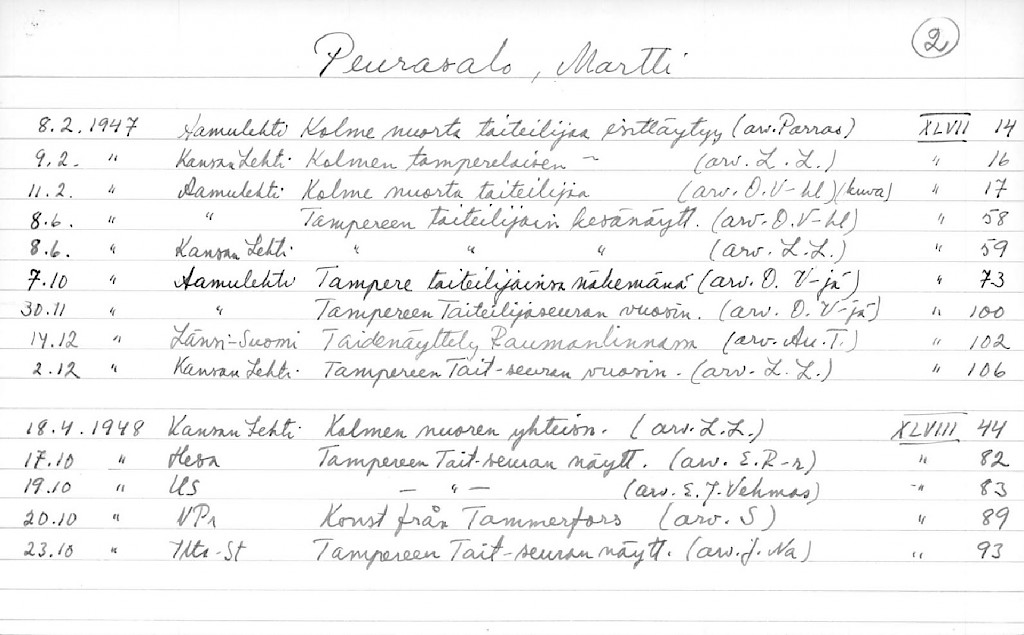 2
Peurasalo, Martti
8.2.1947 Aamulehti Kolme nuorta taiteilijaa esittäytyy (arv. Parras) XLVII 14
9.2. " Kansan Lehti Kolmen tamperelaisen – (arv. L. L.) " 16
11.2. " Aamulehti Kolme nuorta taiteilijaa (arv. O. V-hl) (kuva) " 17
8.6. " " Tampereen taiteilijain kesänäytt. (arv. O. V-hl) " 58
8.6. " Kansan Lehti " " " (arv. L. L.) " 59
7.10 " Aamulehti Tampere taiteilijainsa näkemänä (arv. O. V-jä) " 73
30.11 " " Tampereen Taiteilijaseuran vuosin. (arv. O. V-jä) " 100
14.12 " Länsi-Suomi Taidenäyttely Raumanlinnassa (arv. Au. T.) " 102
2.12 " Kansan Lehti. Tampereen Tait-seuran vuosin. (arv. L. L.) " 106
18.4.1948 Kansan Lehti Kolmen nuoren yhteisn. (arv. L. L.) XLVIII 44
17.10 " Hesa Tampereen Tait-seuran näytt. (arv. E. R-r) " 82
19.10 " US – " – (arv. E. J. Vehmas) " 83
20.10 " NPr Konst från Tammerfors (arv. S) " 89
23.10 " Ilta-St Tampereen Tait-seuran näytt. (arv. J. Na) " 93